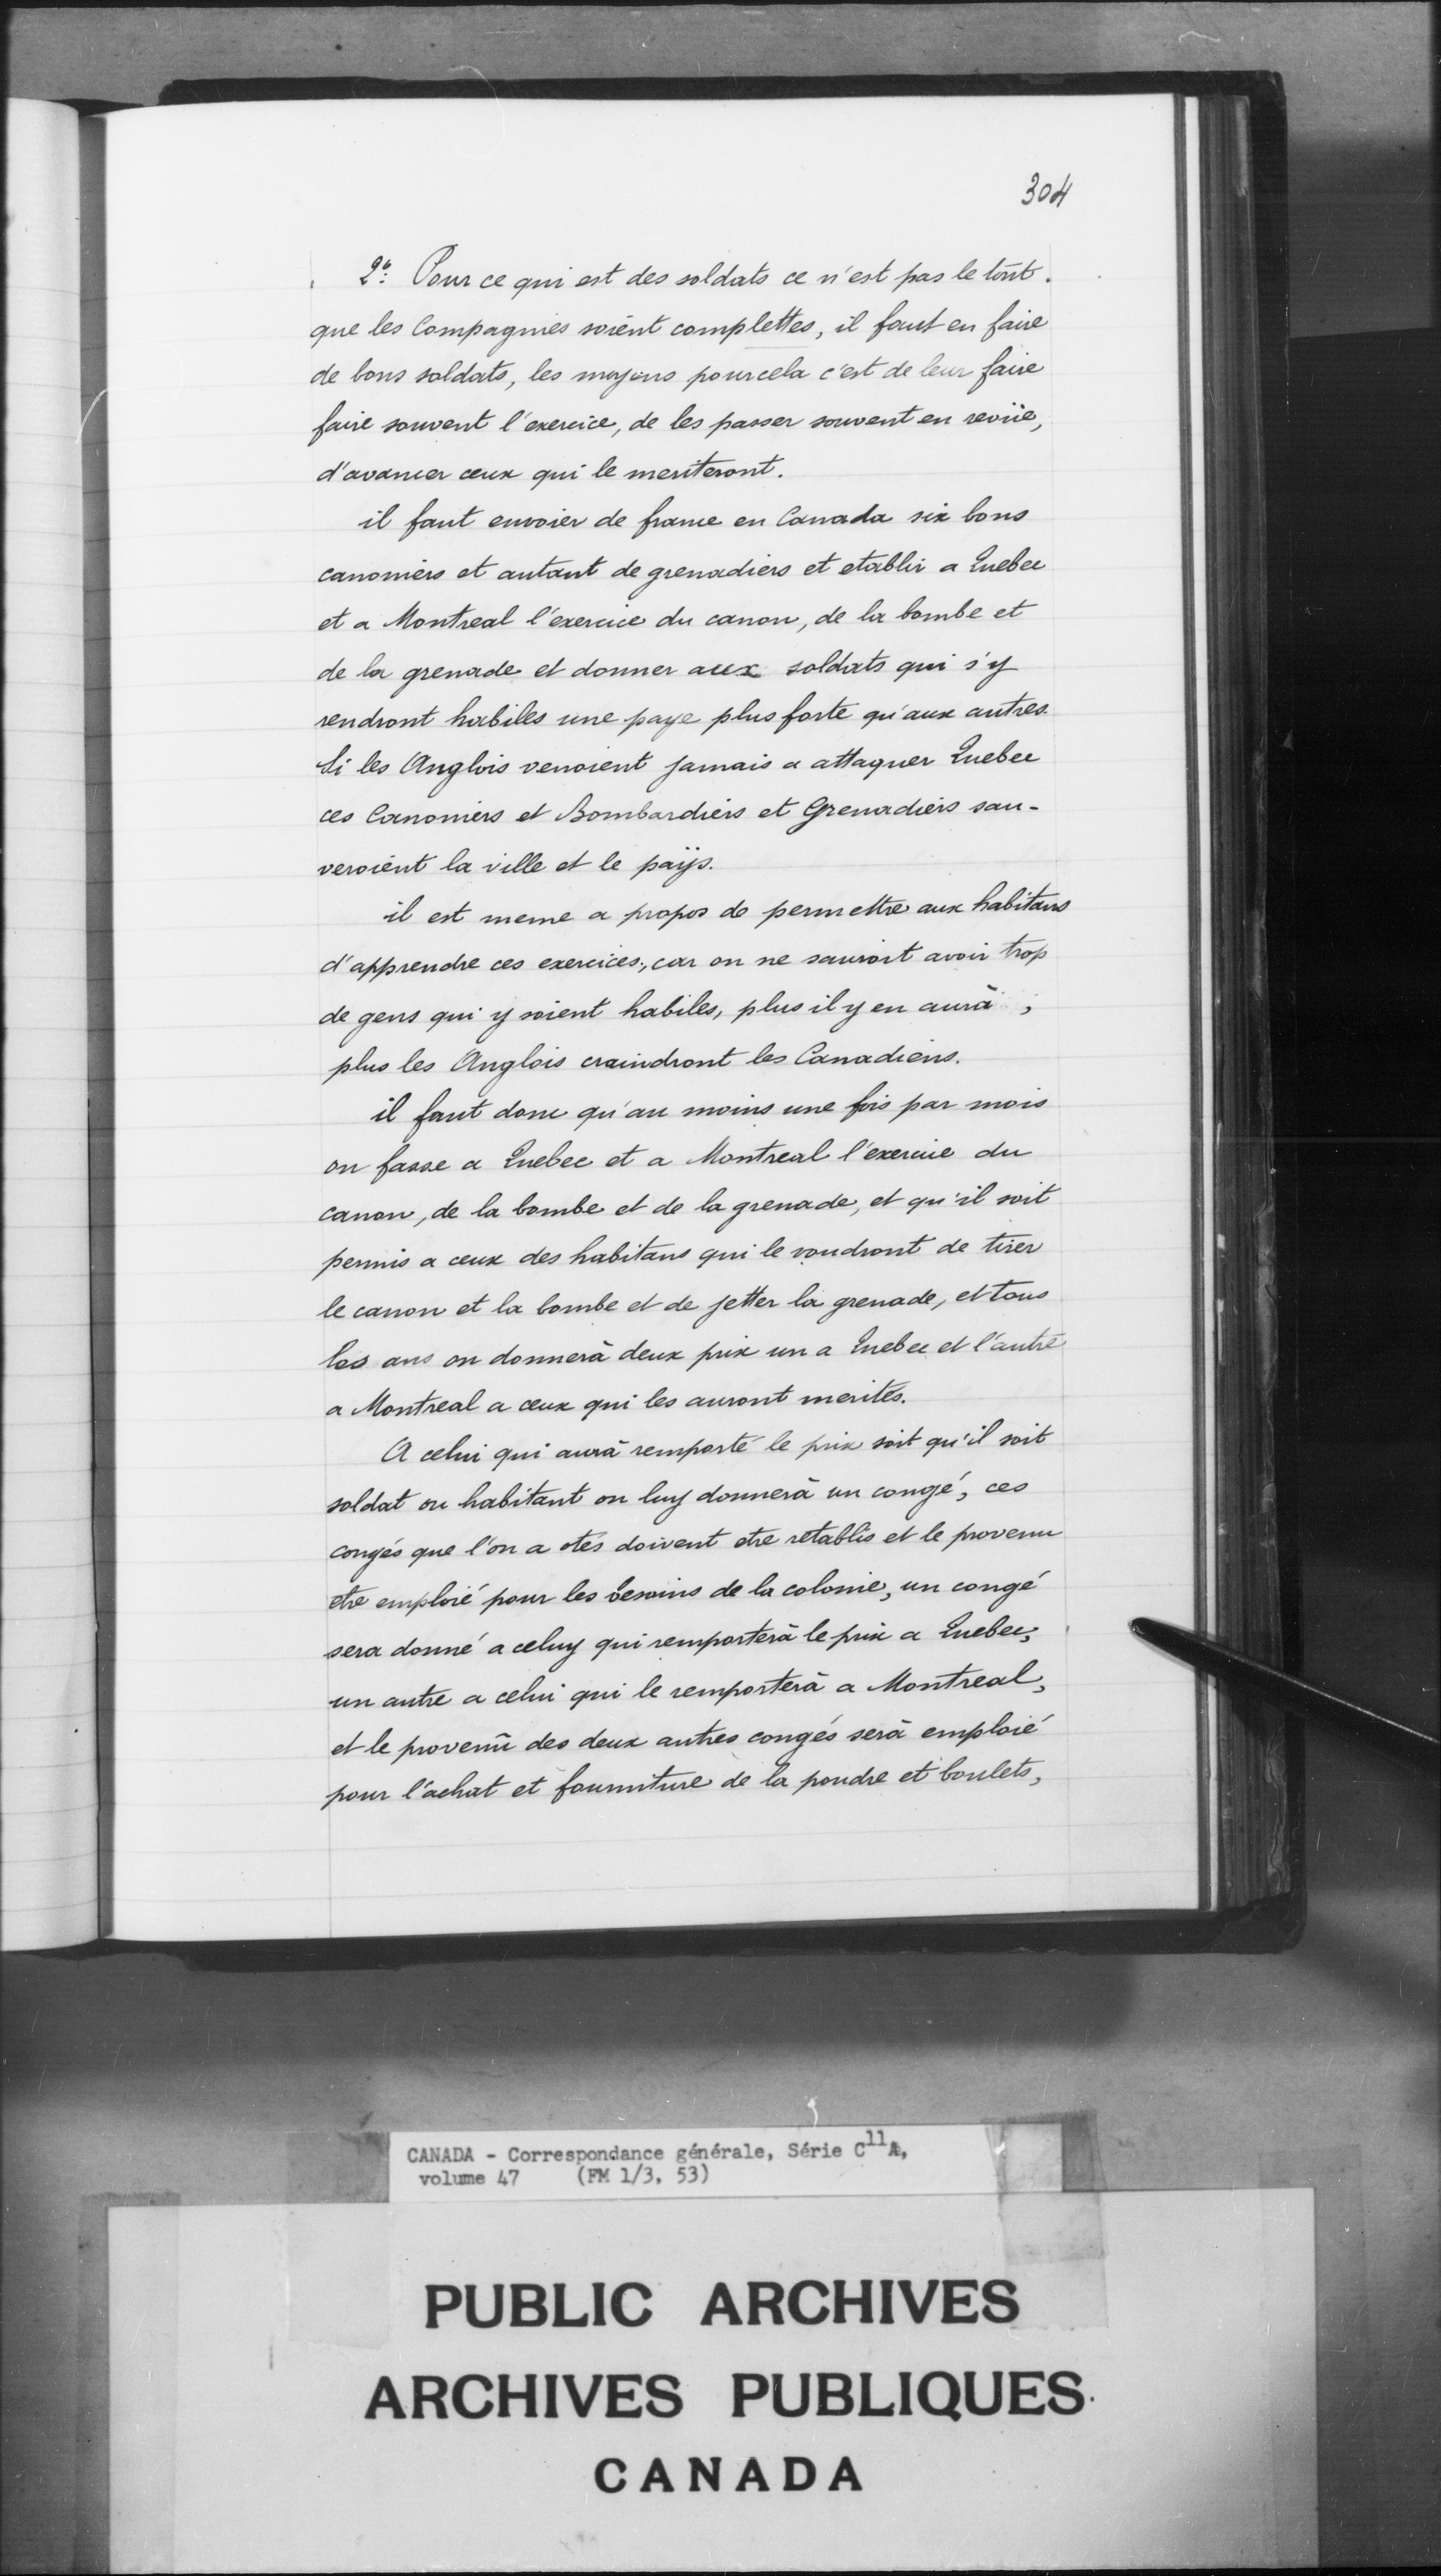 304
2º: Pour ce qui est des soldats ce n'est pas le tout.
que les Compagnies soient complettes, il faut en faire
de bons soldats, les moyens pour cela c'est de leur faire
faire souvent l'exercice, de les passer souvent en revüe,
d'avancer ceux qui le meriteront.
il faut envoier de france en Canada six bons
canoniers et autant de grenadiers et etablir a Quebec
et a Montreal l'exercice du canon, de la bombe et
de la grenade et donner aux soldats qui s'y
rendront habiles une paye plus forte qu'aux autres.
Si les Anglois venoient jamais a attaquer Quebec
ces Canoniers et Bombardiers et Grenadiers sau-
veroient la ville et le paÿs.
il est meme a propos de permettre aux habitans
d'apprendre ces exercices, car on ne sauroit avoir trop
de gens qui y soient habiles, plus il y en aurà ,
plus les Anglois craindront les Canadiens.
il faut donc qu'au moins une fois par mois
on fasse a Quebec et a Montreal l'exercice du
canon, de la bombe et de la grenade, et qu'il soit
permis a ceux des habitans qui le voudront de tirer
le canon et la bombe et de jetter la grenade, et tous
les ans on donnerà deux prix un a Quebec et l'autre
a Montreal a ceux qui les auront merités.
A celui qui aurà remporté le prix soit qu'il soit
soldat ou habitant on luy donnerà un congé, ces
congés que l'on a otés doivent etre retablis et le provenu
etre emploié pour les besoins de la colonie, un congé
sera donné a celuy qui remporterà le prix a Quebec,
un autre a celui qui le remporterà a Montreal,
et le provenû des deux autres congés serà emploié
pour l'achat et fourniture de la poudre et boulets,
CANADA - Correspondance générale, Série C11A,
volume 47 (FM 1/3, 53)
PUBLIC ARCHIVES
ARCHIVES PUBLIQUES
CANADA